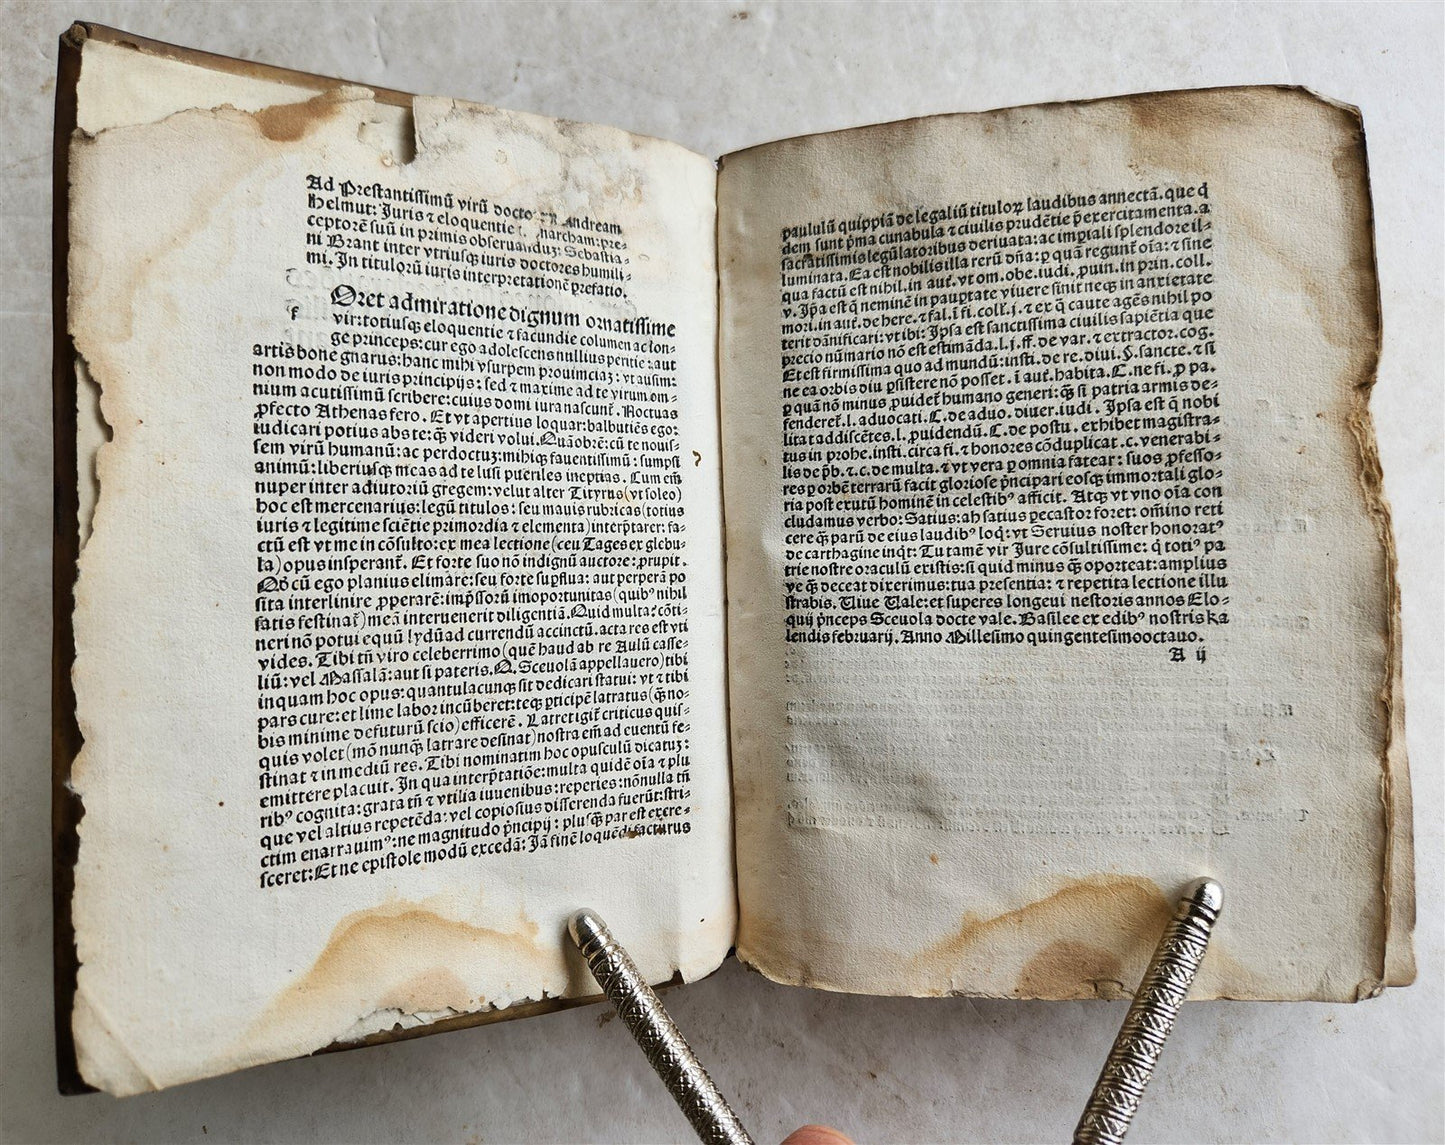 Ad Prestantissimū virū docto Andream
Helmut: Juris ⁊ eloquentie narcham: pre-
ceptorē suū in primis obseruanduz: Sebastia-
ni Brant inter vtriusqꝫ iuris doctores humili-
mi. In titulorū iuris interpretationē prefatio.
f
Oret admiratione dignum ornatissime
vir: totiusqꝫ eloquentie ⁊ facundie columen ac lon-
ge princeps: cur ego adolescens nullius peritie: aut
artis bone gnarus: hanc mihi vsurpem prouinciaz: vt ausim:
non modo de iuris principijs: sed ⁊ maxime ad te virum om-
nium acutissimū scribere: cuius domi iura nascunt᷑. Noctuas
ꝓfecto Athenas fero. Et vt apertius loquar: balbutiēs ego:
iudicari potius abs te: qꝫ videri volui. Quāobrē: cū te nouis-
sem virū humanū: ac perdoctuz: mihiqꝫ fauentissimū: sumpsi
animū: liberiusqꝫ meas ad te lusi pueriles ineptias. Cum em̄
nuper inter adiutoriū gregem: velut alter Tityrus (vt soleo)
hoc est mercenarius: legū titulos: seu mauis rubricas (totius
iuris ⁊ legitime sciētie primordia ⁊ elementa) interp̄tarer: fa-
ctū est vt me in cōsulto: ex mea lectione (ceu Tages ex glebu-
la) opus insperant᷑. Et forte suo nō indignū auctore: ꝓrupit.
Qd̄ cū ego planius elimare: seu forte suꝑflua: aut perperā po
sita interlinire ꝓperarē: imp̄ssorū imoportunitas (quibꝰ nihil
satis festinat᷑) meā interuenerit diligentiā. Quid multa: cōti-
neri nō potui equū lydū ad currendū accinctū. acta res est vti
vides. Tibi tn̄ viro celeberrimo (quē haud ab re Aulū casse-
liū: vel Massalā: aut si pateris. Q. Sceuolā appellauero) tibi
inquam hoc opus: quantulacunqꝫ sit dedicari statui: vt ⁊ tibi
pars cure: et lime labor incūberet: teqꝫ ꝑticipē latratus (qꝫ no-
bis minime defuturū scio) efficerē. Latret igit᷑ criticus quis-
quis volet (mō nunqꝫ latrare desinat) nostra em̄ ad euentū fe-
stinat ⁊ in mediū res. Tibi nominatim hoc opusculū dicatuz:
emittere placuit. In qua interp̄tatiōe: multa quidē oīa ⁊ plu
ribꝰ cognita: grata tn̄ ⁊ vtilia iuuenibus: reperies: nōnulla tn̄
que vel altius repetēda: vel copiosius disserenda fuerūt: stri-
ctim enarrauimꝰ: ne magnitudo p̄ncipij: plusqꝫ par est excre-
sceret: Et ne epistole modū excedā: Jā finē loquēdi facturus
paululū quippiā de legaliū titulorꝫ laudibus annectā. que q̄
dem sunt p̄ma cunabula ⁊ ciuilis prudētie p̄exercitamenta. a
sacratissimis legūlatoribus deriuata: ac imꝑiali splendore il-
luminata. Ea est nobilis illa rerū dn̄a: ꝑ quā regunt᷑ oīa: ⁊ sine
qua factū est nihil. in aut᷑. vt om. obe. iudi. ꝓuin. in prin. coll.
v. Ip̄a est q̄ neminē in pauꝑtate viuere sinit neqꝫ in anxietate
mori. in aut᷑. de here. ⁊ fal. ī fi. coll᷑. j. ⁊ ex q̄ caute agēs nihil po
terit dānificari: vt ibi: Ipsa est sanctissima ciuilis sapiētia que
precio nūmario nō est estimāda. l. j. ff. de var. ⁊ extractor. cog.
Et est firmissima quo ad mundū: insti. de re. diui. §. sancte. ⁊ si
ne ea orbis diu ꝑsistere nō posset. ī aut᷑. habita. C. ne fi. ꝓ pa.
ꝑ quā nō minus ꝓuidet᷑ humano generi: qꝫ si patria armis de-
fenderet᷑. l. aduocati. C. de aduo. diuer. iudi. Ipsa est q̄ nobi
litat addiscētes. l. ꝓuidendū. C. de postu. exhibet magistra-
tus in prohe. insti. circa fi. ⁊ honores cōduplicat. c. venerabi-
lis de p̄b. ⁊. c. de multa. ⁊ vt vera ꝑ omnia fatear: suos ꝓfesso-
res ꝑ orbē terrarū facit gloriose p̄ncipari eosqꝫ immortali glo-
ria post exutū hominē in celestibꝰ afficit. Atqꝫ vt vno oīa con
cludamus verbo: Satius: ah satius ꝑcastor foret: om̄ino reti
cere qꝫ parū de eius laudibꝰ loq̄: vt Seruius noster honoratꝰ
de carthagine inqt᷑: Tu tamē vir Jure cōsultissime: q̄ totiꝰ pa
trie nostre oraculū existis: si quid minus qꝫ oporteat: amplius
ve qꝫ deceat dixerimus: tua presentia: ⁊ repetita lectione illu
strabis. Viue Vale: et superes longeui nestoris annos Elo-
quij p̄nceps Sceuola docte vale. Basilee ex edibꝰ nostris ka
lendis februarij. Anno Millesimo quingentesimooctauo.
A ij